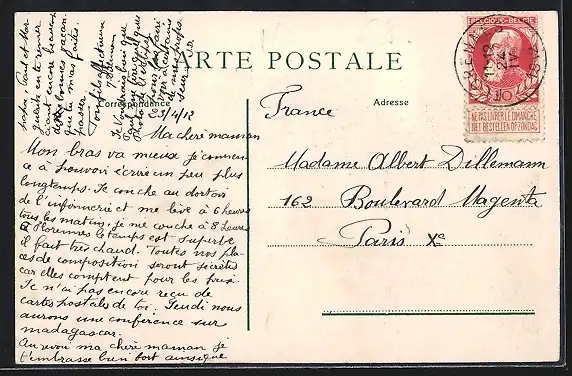 CARTE POSTALE
Correspondance
Adresse
BELGIQUE-BELGIË
10
NE PAS LIVRER LE DIMANCHE
NIET BESTELLEN OP ZONDAG
23/4/12
Ma chère maman
Mon bras va mieux je commen-
ce à pouvoir écrire un peu plus
longtemps. Je couche au dortoir
de l'infirmerie et me lève à 6 heures
tous les matins, je me couche à 8 heures
A Florennes le temps est superbe
il fait très chaud. Toutes nos pla-
ces de composition seront secrètes
car elles comptent pour les prix.
Je n'ai pas encore reçu de
cartes postale de toi. Jeudi nous
aurons une conférence sur
madagascar.
Au revoir ma chère maman je
t'embrasse bien fort ainsi que
papa Paul et Mar
guerite en te remer
ciant encore
bonnes vacan-
ces que tu m'as faites
passer.
Ton fils affectueux
Je voudrais bien que
France
Madame Albert Dillemann
162 Boulevard Magenta
Paris Xe